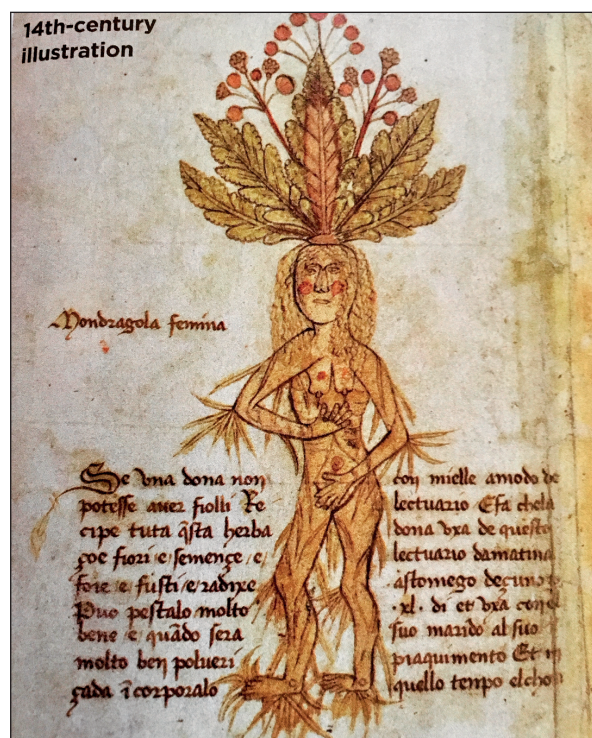 14th-century
illustration
Mondragola femina
Se vna dona non
potesse auer fiolli Re
cipe tuta q̃sta herba
çoe fiori e semençe e
foie e fusti e radixe
Puo pestalo molto
bene e quãdo sera
molto ben polueri
çada ĩcorporalo
con mielle amodo de
lectuario Efa chela
dona vxa de questo
lectuario damatina
astomego deçuno
.xl. di et vxa con el
suo marido al suo
piaquimento Et in
quello tempo elcho